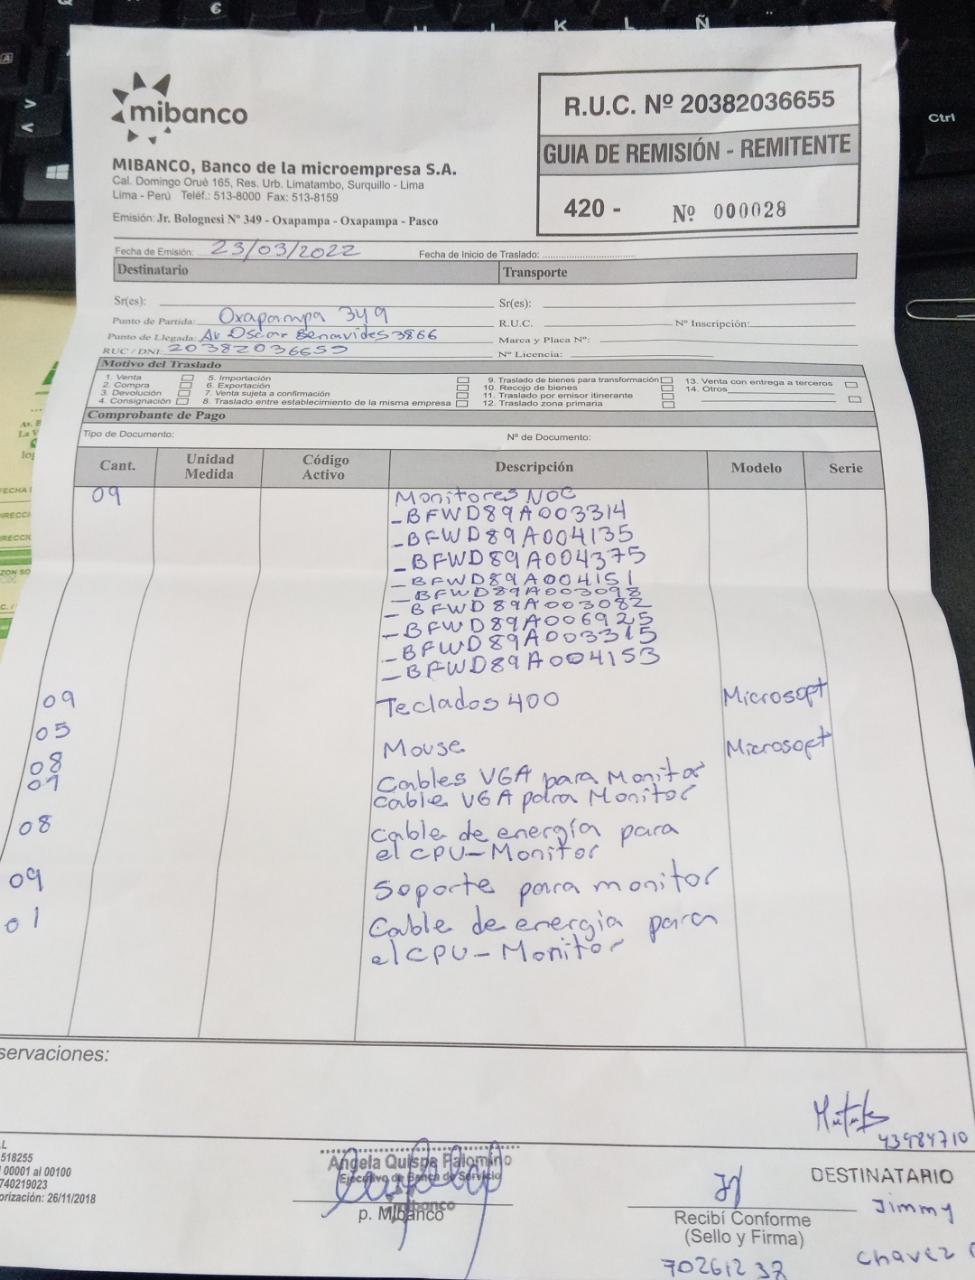 mibanco
MIBANCO, Banco de la microempresa S.A.
Cal. Domingo Orué 165, Res. Urb. Limatambo, Surquillo - Lima
Lima - Perú Teléf.: 513-8000 Fax: 513-8159
Emisión: Jr. Bolognesi Nº 349 - Oxapampa - Oxapampa - Pasco
R.U.C. Nº 20382036655
GUIA DE REMISIÓN - REMITENTE
420 - Nº 000028
Fecha de Emisión: 23/03/2022 Fecha de Inicio de Traslado:
Destinatario Transporte
Sr(es): Sr(es):
Punto de Partida: Oxapampa 349 R.U.C. Nº Inscripción:
Punto de Llegada: Av Oscar Benavides 3866 Marca y Placa Nº:
RUC / DNI: 20382036655 Nº Licencia:
Motivo del Traslado
1. Venta 5. Importación 9. Traslado de bienes para transformación 13. Venta con entrega a terceros
2. Compra 6. Exportación 10. Recojo de bienes 14. Otros
3. Devolución 7. Venta sujeta a confirmación 11. Traslado por emisor itinerante
4. Consignación 8. Traslado entre establecimiento de la misma empresa 12. Traslado zona primaria
Comprobante de Pago
Tipo de Documento: Nº de Documento:
Cant. Unidad Medida Código Activo Descripción Modelo Serie
09 Monitores NOC
-BFWD89A003314
-BFWD89A004135
-BFWD89A004375
-BFWD89A004151
-BFWD89A003098
-BFWD89A003082
-BFWD89A006925
-BFWD89A003315
-BFWD89A004153
09 Teclados 400 Microsoft
05 Mouse Microsoft
08 Cables VGA para Monitor
01 Cable VGA para Monitor
08 Cable de energía para
el CPU-Monitor
09 Soporte para monitor
01 Cable de energia para
el CPU-Monitor
servaciones:
518255
00001 al 00100
740219023
orización: 26/11/2018
Angela Quispe Palomino
Ejecutivo de Banca de Servicio
mibanco
p. Mibanco
43984710
DESTINATARIO
Jimmy
Chavez
Recibí Conforme
(Sello y Firma)
70261238
Ctrl